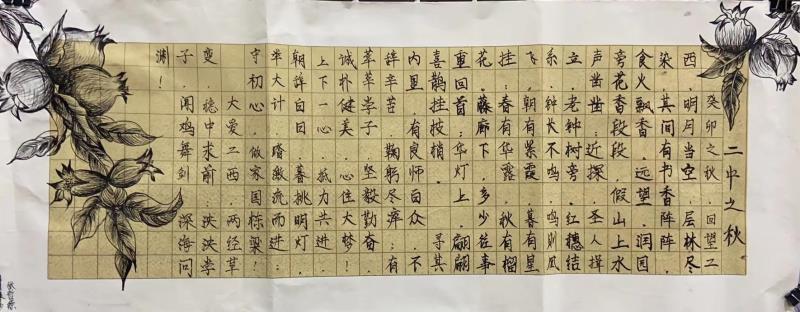 二中之秋
癸卯之秋.回望二
西.明月当空.层林尽
染.其间有书香阵阵
食火飘香.远望润园
旁花香段段.假山上水
声凿凿.近探.圣人择
立.老钟树旁.红穗结
系.钟长不鸣.鸣则风
飞.朝有景霞.暮有星
挂.春有华露.秋有榴
花.藤廊下.多少往事
重回首.华灯上.翩翩
喜鹊挂枝梢.寻其
内里.有良师百众.不
辞辛苦.鞠躬尽瘁.有
莘莘学子.坚毅勤奋
诚朴健美.心住大梦!
上下一心.戮力共进.
朝辞白日.喜挑明灯.
举大计.踏激流而进.
守初心.做家国栋梁!
大爱二西.两经草
变.稳中求前.泱泱学
子.闻鸡舞剑.深海问
渊!